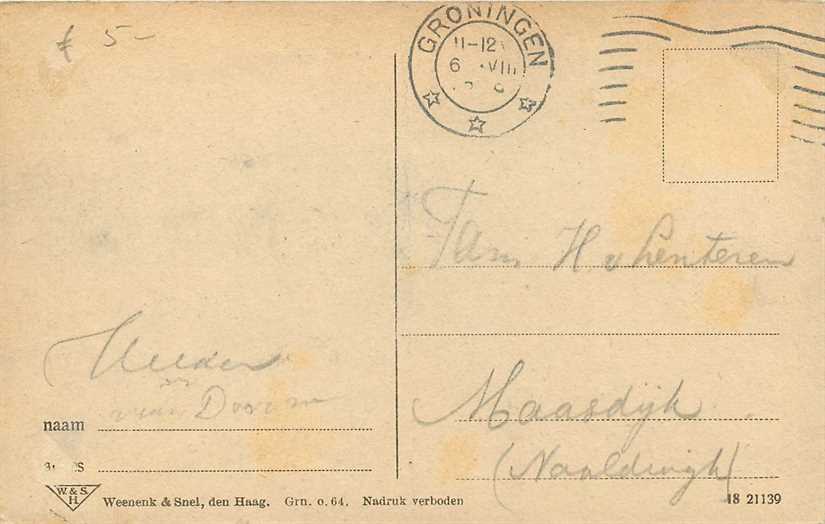 £ 5-
GRONINGEN
11-12
6 VIII
Fam H v Lenteren
van Doorn
naam
Maasdijk
(Naaldwijk)
W. & S.
H.
Weenenk & Snel, den Haag. Grn. o. 64. Nadruk verboden
18 21139